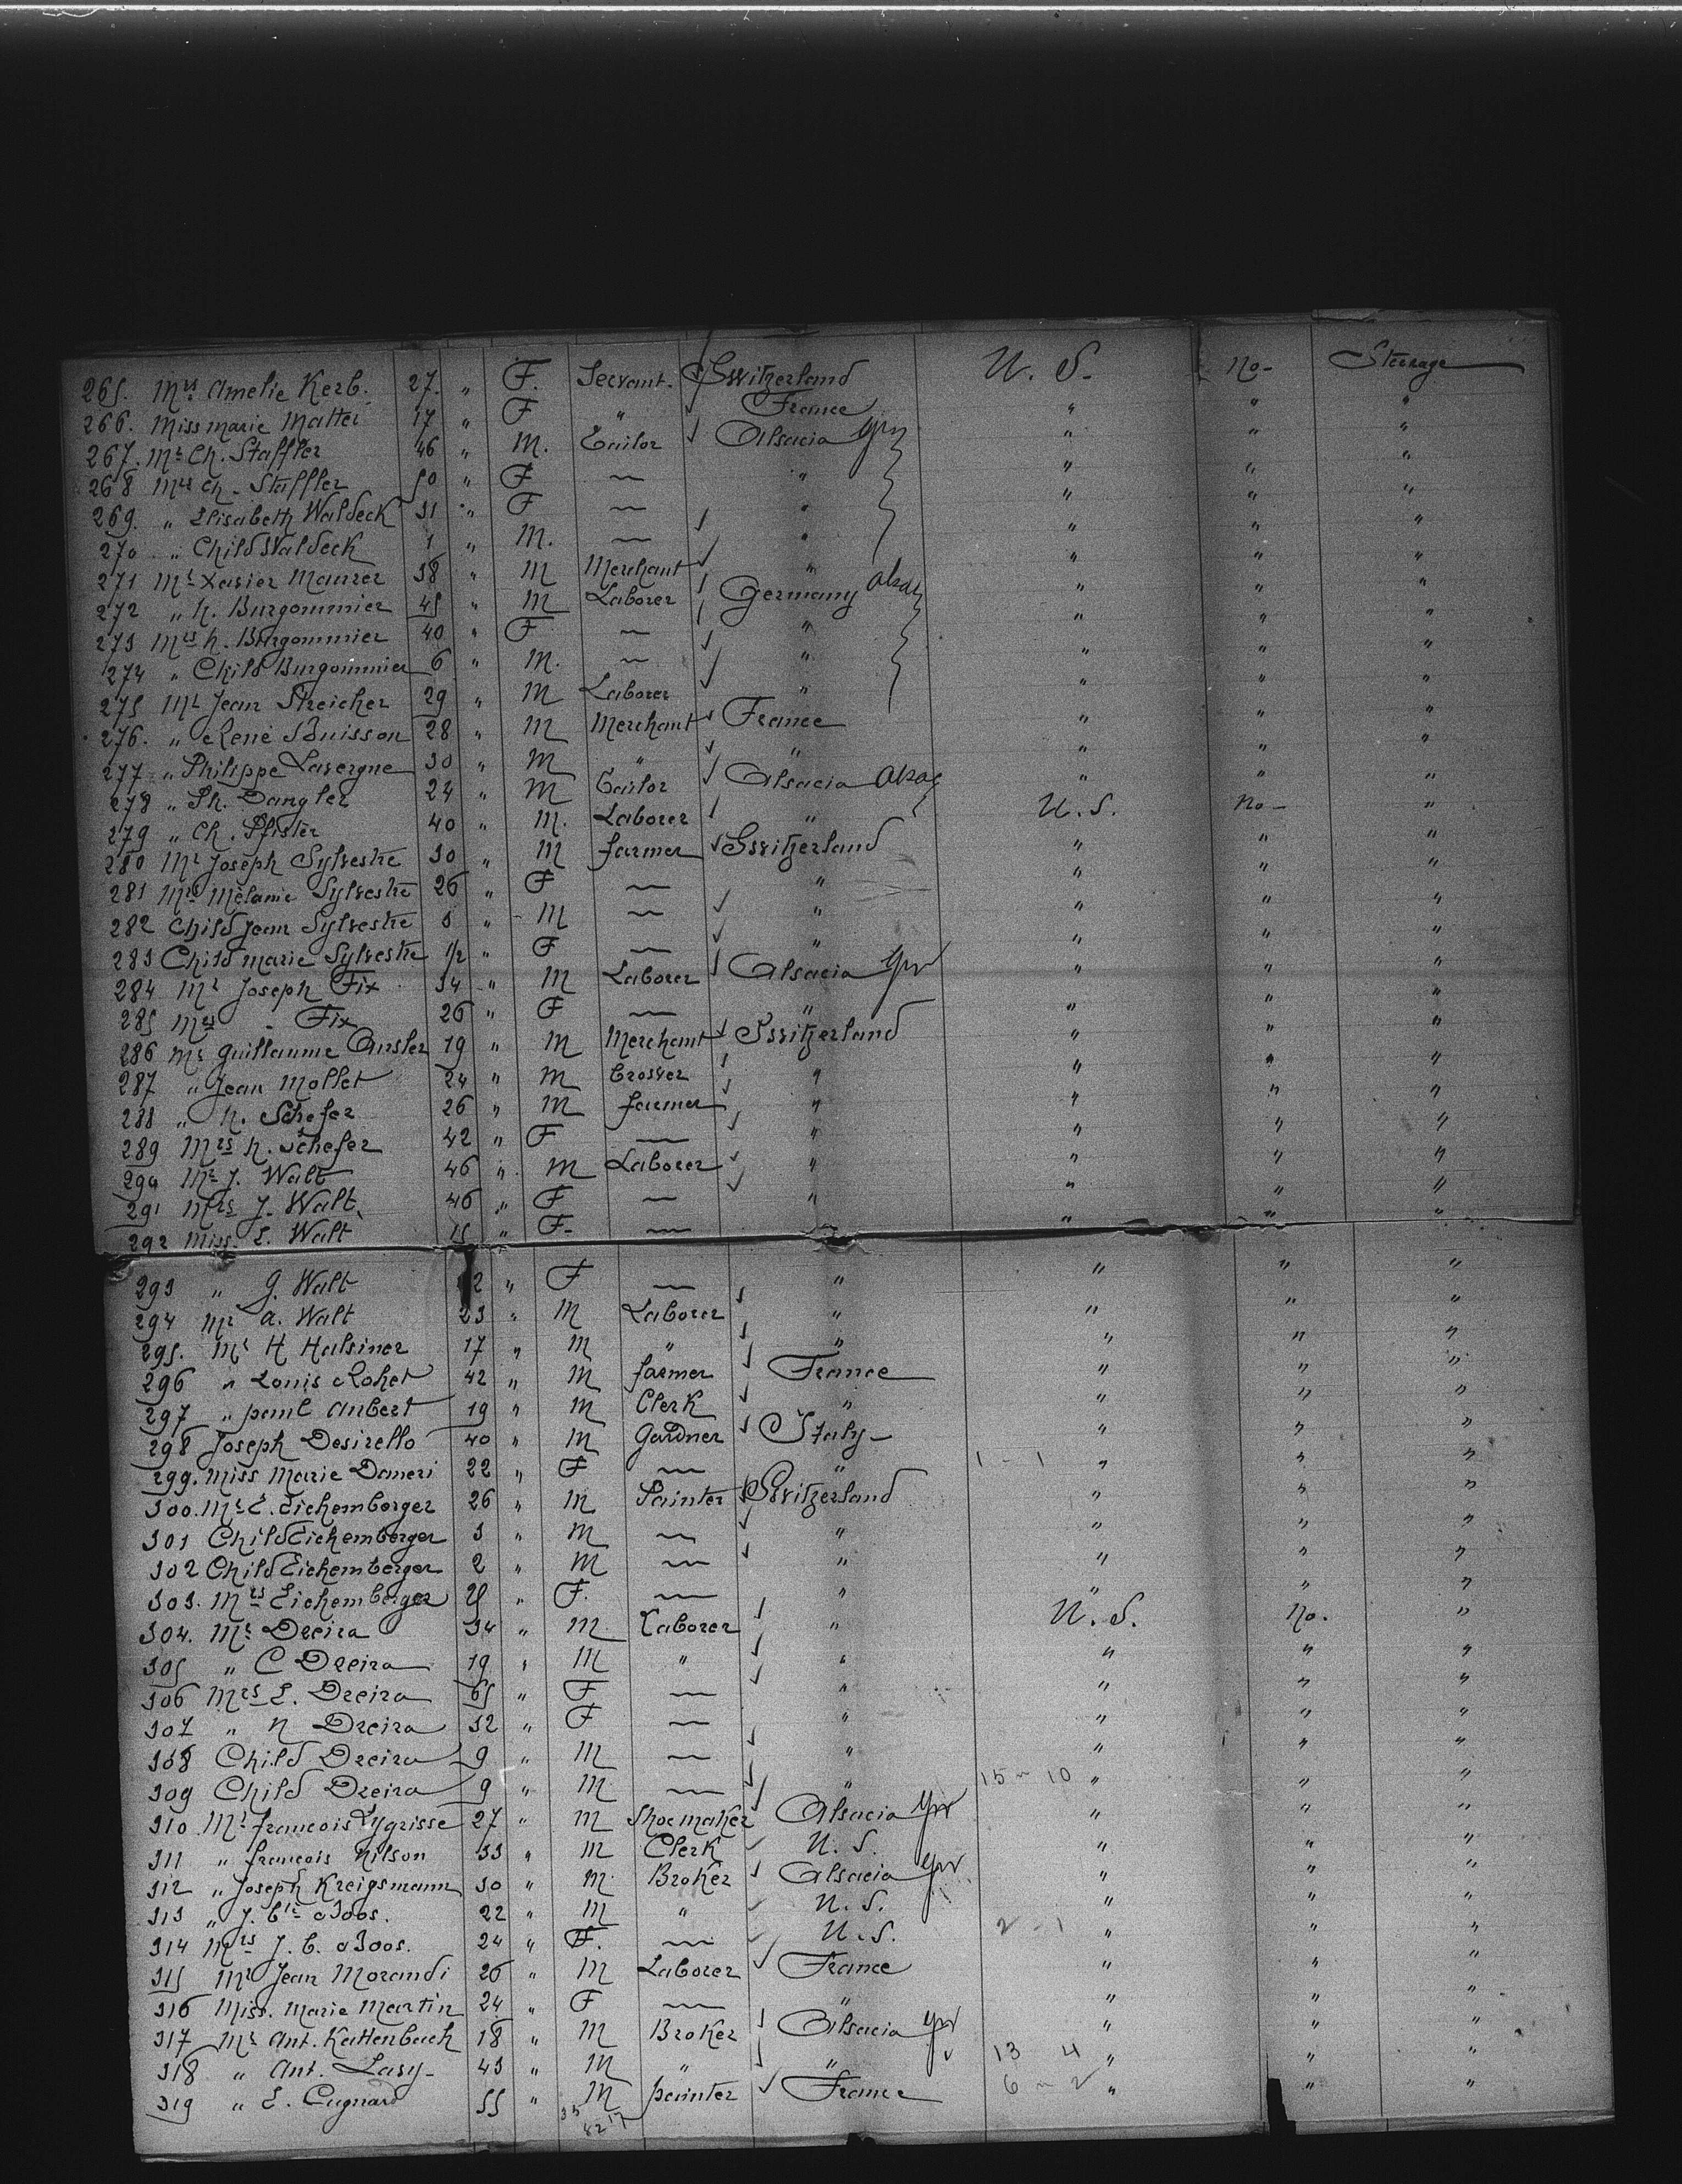 265. Mrs Amelie Kerb. 27. " F. Servant. Switzerland U. S. No- Sterrage
266. Miss Marie Matter 17 " F " France " " "
267. Mr Ch. Staffler 46 " M. Tailor Alsacia Gr " " "
268 Mrs Ch. Staffler 50 " F — " " " "
269. " Elisabeth Waldeck 31 " F — " " " "
270 " Child Waldeck 1 " M. — " " " "
271 Mr Xavier Maurer 38 " M Merchant " " " "
272 " N. Burgommier 45 " M Laborer Germany " " "
273 Mrs N. Burgommier 40 " F — " " " "
274 " Child Burgommier 6 " M. — " " " "
275 Mr Jean Streicher 29 " M Laborer " " " "
276. " René Buisson 28 " M Merchant France " " "
277 " Philippe Lavergne 30 " M " " " " "
278 " Ph. Dangler 24 " M Tailor Alsacia " " "
279 " Ch. Pfister 40 " M. Laborer " U. S. No- "
280 Mr Joseph Sylvestre 30 " M farmer Switzerland " " "
281 Mrs Mélanie Sylvestre 26 " F — " " " "
282 Child Jean Sylvestre " M — " " " "
283 Child Marie Sylvestre 1/2 " F — " " " "
284 Mr Joseph Fix 34 " M Laborer Alsacia Gr " " "
285 Mrs - Fix 26 " F — " " " "
286 Mr Guillaume Ansler 19 " M Merchant Switzerland " " "
287 " Jean Mollet 24 " M " " " "
288 " N. Schefer 26 " M farmer " " " "
289 Mrs N. Schefer 42 " F — " " " "
290 Mr J. Walt 46 " M Laborer " " " "
291 Mrs J. Walt 46 " F — " " " "
292 Miss. E. Walt 15 " F- — " " "
293 " G. Walt 2 " F — " " " "
294 Mr A. Walt 23 " M Laborer " " " "
295. Mr H Halsiner 17 " M " " " " "
296 " Louis Rohet 42 " M farmer France " " "
297 " Paul Aubert 19 " M Clerk " " " "
298 Joseph Desirello 40 " M Gardner Italy- " " "
299. Miss Marie Daneri 22 " F — " 1 - 1 " " "
300. Mr E. Eichemberger 26 " M Painter Switzerland " " "
301 Child Eichemberger 3 " M — " " " "
302 Child Eichemberger 2 " M — " " " "
303. Mrs Eichemberger 25 " F. — " " " "
304. Mr Dreira 34 " M Laborer " U. S. No. "
305 " C Dreira 19 " M " " " " "
306 Mrs E. Dreira 65 " F — " " " "
307 " N Dreira 32 " F — " " " "
308 Child Dreira 9 " M — " " " "
309 Child Dreira 9 " M — " 15 - 10 " " "
310 Mr francois Lygrisse 27 " M Shoemaker Alsacia Gr " " "
311 " francois Nilson 33 " M Clerk U. S. " " "
312 " Joseph Kreigsmann 30 " M Broker Alsacia Gr " " "
313 " J. Bte Boos. 22 " M " U. S. " " "
314 Mrs J. B. Boos. 24 " F. — U. S. 2 - 1 " " "
315 Mr Jean Morandi 26 " M Laborer France " " "
316 Miss. Marie Martin 24 " F — " " " "
317 Mr Ant. Kattenbach 18 " M Broker Alsacia Gr " " "
318 " Ant. Lasy- 43 " M " " 13 4 " " "
319 " E. Cugnard 55 " M painter France 6 - 2 " " "